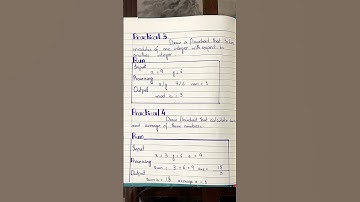 Practical 3
Draw a flowchart that takes
modulus of one integer with respect to
another integer
Run
Input
x = 9 y = 6
Processing
x/y 9/6 rem = 3
Output
mod is = 3
Practical 4
Draw flowchart that calculate sum
and average of three numbers
Run
Input
x = 3 y = 6 z = 9
Processing
Sum = 3 + 6 + 9 ave = 18
3
Output
Sum is = 18 average is = 6